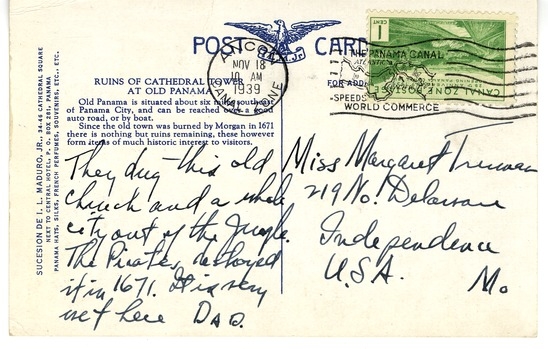 POST CARD
ANCON
NOV 18
10 AM
1939
CANAL ZONE
THE PANAMA CANAL
ATLANTIC
FOR ADD
-SPEEDS
WORLD COMMERCE
1
CENT
CANAL ZONE POSTAGE
RUINS OF CATHEDRAL TOWER
AT OLD PANAMA
Old Panama is situated about six miles southeast
of Panama City, and can be reached over a good
auto road, or by boat.
Since the old town was burned by Morgan in 1671
there is nothing but ruins remaining, these however
form items of much historic interest to visitors.
SUCESION DE I. L. MADURO, JR., 34-46 CATHEDRAL SQUARE
NEXT TO CENTRAL HOTEL, P. O. BOX 281, PANAMA
PANAMA HATS, SILKS, FRENCH PERFUMES, SOUVENIRS, ETC., ETC.
They dug this old
church and a whole
city out of the Jungle.
The Pirates destroyed
it in 1671. It is very
wet here Dad.
Miss Margaret Truman
219 No. Delaware
Independence
U.S.A. Mo